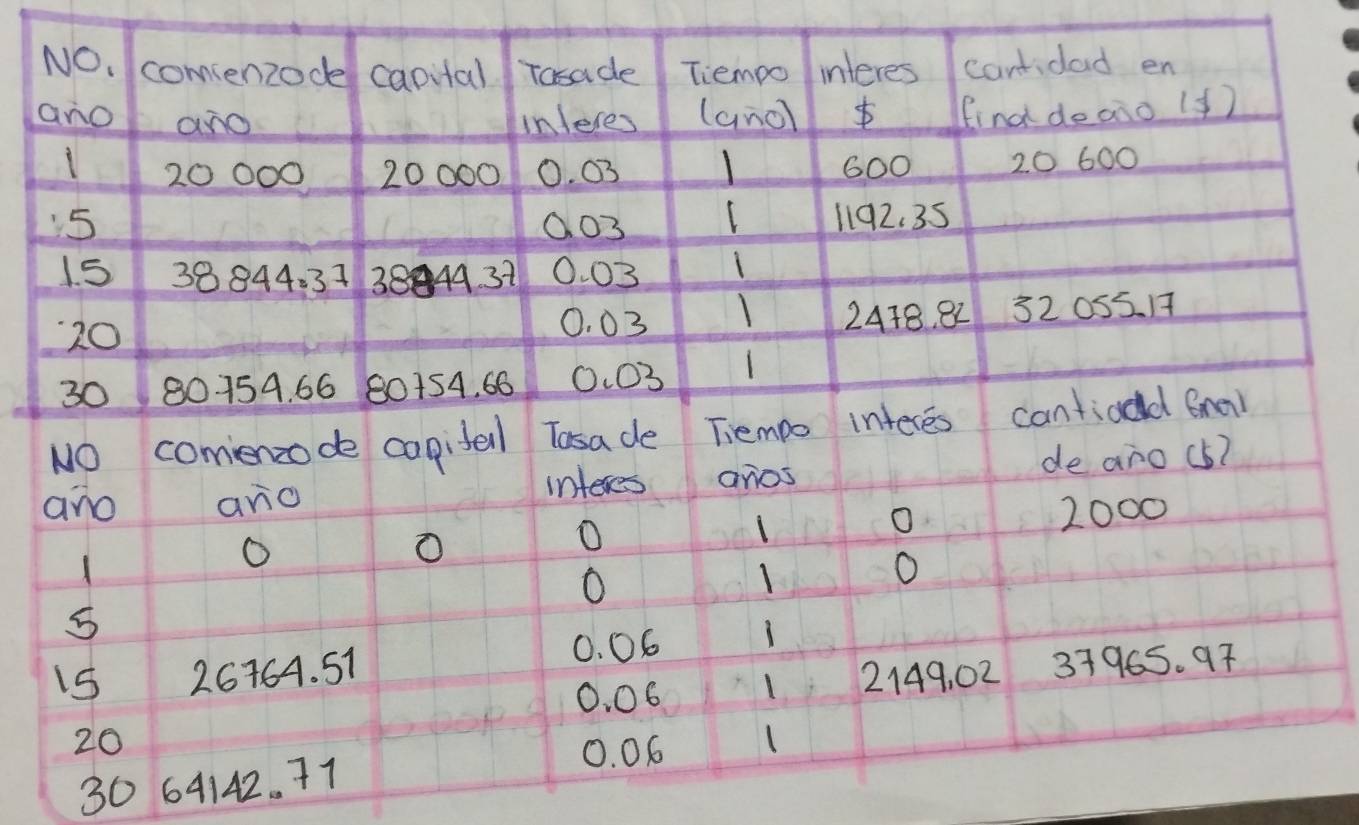 NO. comienzo de capital Tasa de Tiempo interes cantidad en
año año interes (año) $ final de año ($)
1 20 000 20 000 0.03 1 600 20 600
5 0.03 1 1192.35
15 38 844.37 38844.37 0.03 1
20 0.03 1 2478.82 52 055.17
30 80754.66 80754.66 0.03 1
NO comienzo de capital Tasa de Tiempo interés cantidad final
año año interes años de año ($)
1 0 0 0 1 0 2000
5 0 1 0
15 26764.51 0.06 1
20 0.06 1 2149.02 37965.97
30 64142.71 0.06 1